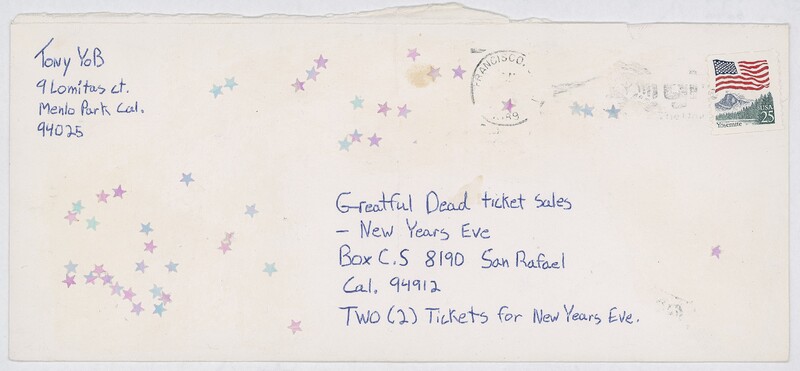 Tony YoB
9 Lomitas ct.
Menlo Park Cal.
94025
FRANCISCO,
Yosemite
USA
25
Greatful Dead ticket sales
- New Years Eve
Box C.S 8190 San Rafael
Cal. 94912
TWO (2) Tickets for New Years Eve.